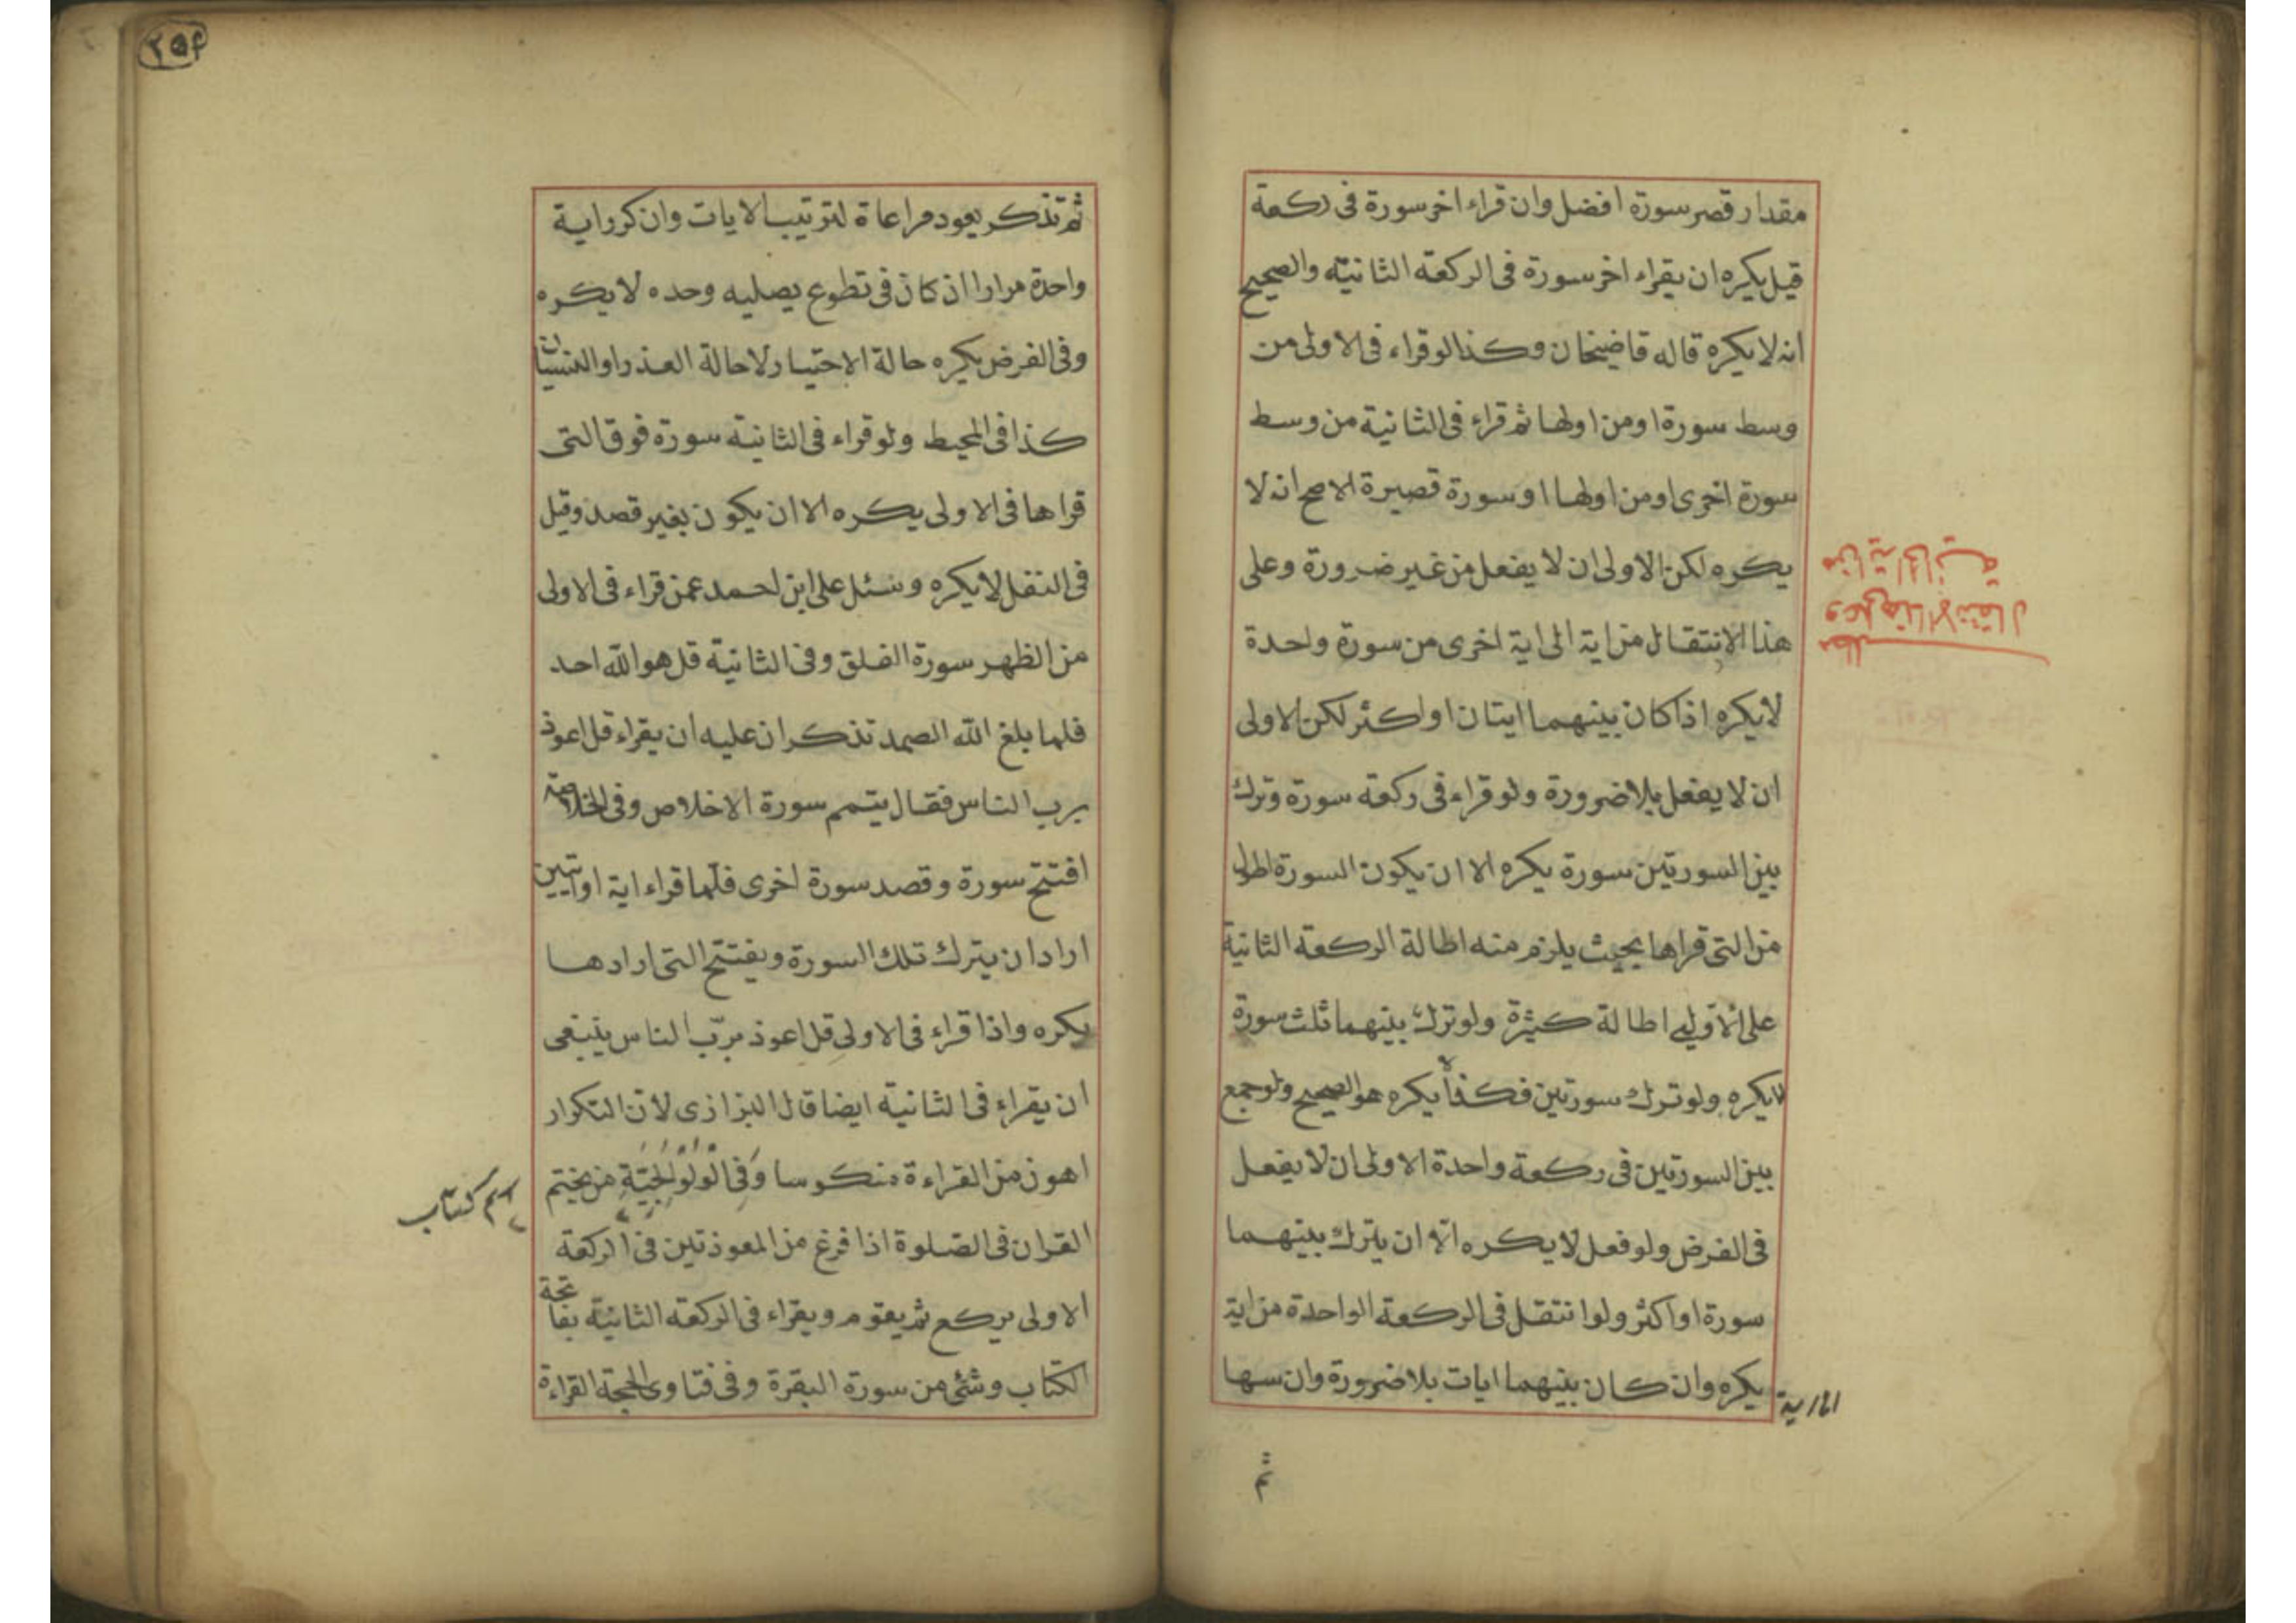 مقدار قصر سورة افضل وان قراء اخر سورة فى ركعة
قيل يكره ان يقراء اخر سورة فى الركعة الثانية والصحيح
انه لا يكره قاله قاضيخان وكذا لو قراء فى الاولى من
وسط سورة او من اولها ثم قراء فى الثانية من وسط
سورة اخرى او من اولها او سورة قصيرة الاصح انه لا
يكره لكن الاولى ان لا يفعل من غير ضرورة وعلى
هذا الانتقال من اية الى اية اخرى من سورة واحدة
لا يكره اذا كان بينهما ايتان او اكثر لكن الاولى
ان لا يفعل بلا ضرورة ولو قراء فى ركعة سورة وترك
بين السورتين سورة يكره الا ان يكون السورة اطول
من التى قراها بحيث يلزم منه اطالة الركعة الثانية
على الاولى اطالة كثيرة ولو ترك بينهما ثلث سورة
لا يكره ولو ترك سورتين فكذا لا يكره هو الصحيح ولو جمع
بين السورتين فى ركعة واحدة الاولى ان لا يفعل
فى الفرض ولو فعل لا يكره الا ان يترك بينهما
سورة او اكثر ولو انتقل فى الركعة الواحدة من اية
يكره وان كان بينهما ايات بلا ضرورة وان سها
الى اية
ثم
مطلب
وعلى هذا الانتقال
من اية الى اية
٢٥٤
ثم تذكر يعود مراعاة لترتيب الايات وان كرر اية
واحدة مرارا ان كان فى تطوع يصليه وحده لا يكره
وفى الفرض يكره حالة الاختيار لا حالة العذر او النسيان
كذا فى المحيط ولو قراء فى الثانية سورة فوق التى
قراها فى الاولى يكره الا ان يكون بغير قصد وقيل
فى النفل لا يكره وسئل على ابن احمد عمن قراء فى الاولى
من الظهر سورة الفلق وفى الثانية قل هو الله احد
فلما بلغ الله الصمد تذكر ان عليه ان يقراء قل اعوذ
برب الناس فقال يتمم سورة الاخلاص وفى الخلاصة
افتتح سورة وقصد سورة اخرى فلما قراء اية او ايتين
اراد ان يترك تلك السورة ويفتتح التى ارادها
يكره واذا قراء فى الاولى قل اعوذ بربّ الناس ينبغى
ان يقراء فى الثانية ايضا قال البزازى لان التكرار
اهون من القراءة منكوسا وَفِى الْوَلْوَالِجِيَّةِ من يختم
القران فى الصلوة اذا فرغ من المعوذتين فى الركعة
الاولى يركع ثم يقوم ويقراء فى الركعة الثانية بفاتحة
الكتاب وشئ من سورة البقرة وفى فتاوى الحجة القراءة
اسم كتاب